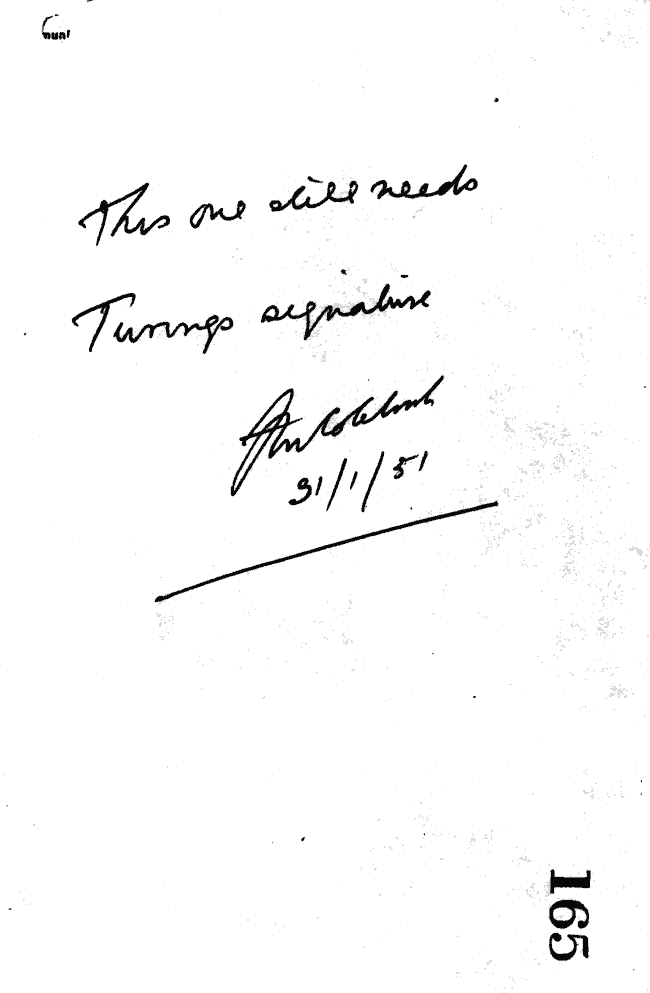 This one still needs
Turings signature
31/1/51
165